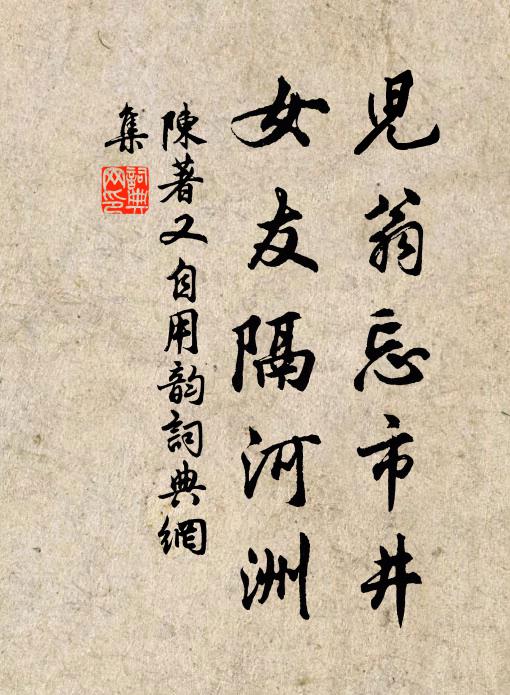 兒翁忘市井
女友隔河洲
陳著又自用韵詞典網
集
詞典
网印